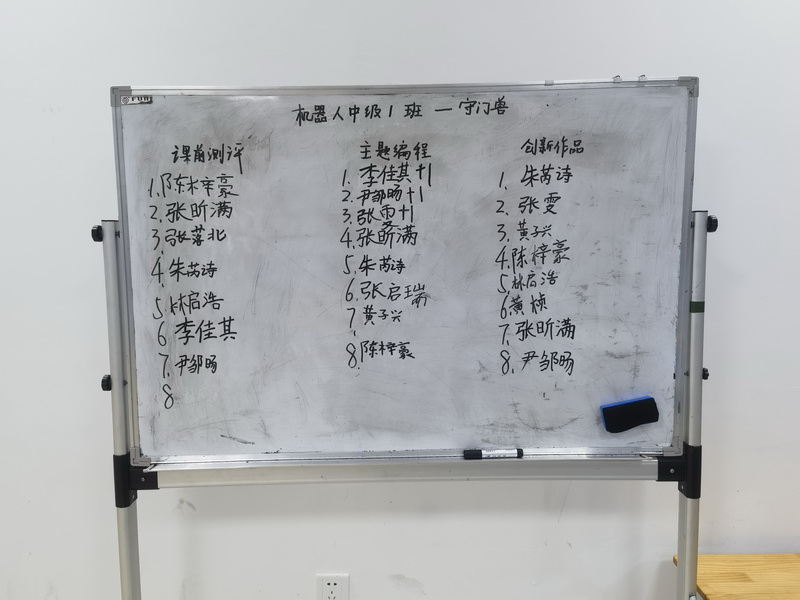 机器人中级1班 — 守门兽
课前测评
1. 陈梓豪
2. 张昕满
3. 张落北
4. 朱芮诗
5. 林启浩
6. 李佳其
7. 尹邹旸
8.
主题编程
1. 李佳其+1
2. 尹邹旸+1
3. 张雯+1
4. 张昕满
5. 朱芮诗
6. 张启瑞
7. 黄子兴
8. 陈梓豪
创新作品
1. 朱芮诗
2. 张雯
3. 黄子兴
4. 陈梓豪
5. 林启浩
6. 黄桢
7. 张昕满
8. 尹邹旸